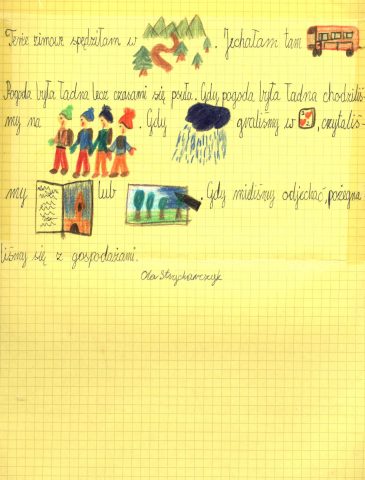 Ferie zimowe spędziłam w . Jechałam tam
Pogoda była ładna lecz czasami się psuła. Gdy pogoda była ładna chodziliś-
my na . Gdy graliśmy w , czytaliś-
my lub . Gdy mieliśmy odjechać, pożegna
liśmy się z gospodażami.
Ola Strychaczyk